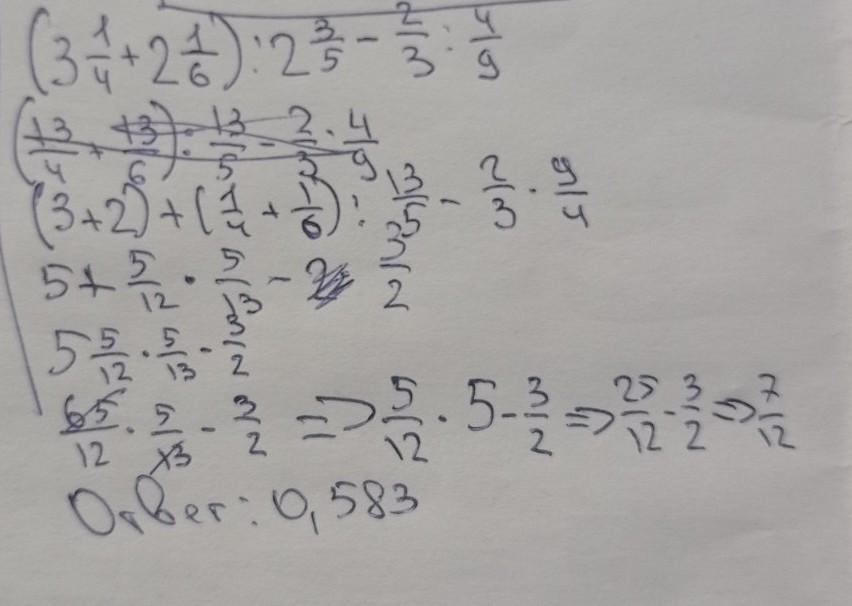 (3 1/4 + 2 1/6) : 2 3/5 - 2/3 : 4/9
(13/4 + 13/6) : 13/5 - 2/3 : 4/9
(3+2) + (1/4 + 1/6) : 13/5 - 2/3 · 9/4
5 + 5/12 · 5/13 - 3/2
5 5/12 · 5/13 - 3/2
65/12 · 5/13 - 3/2 => 5/12 · 5 - 3/2 => 25/12 - 3/2 => 7/12
Ответ: 0,583